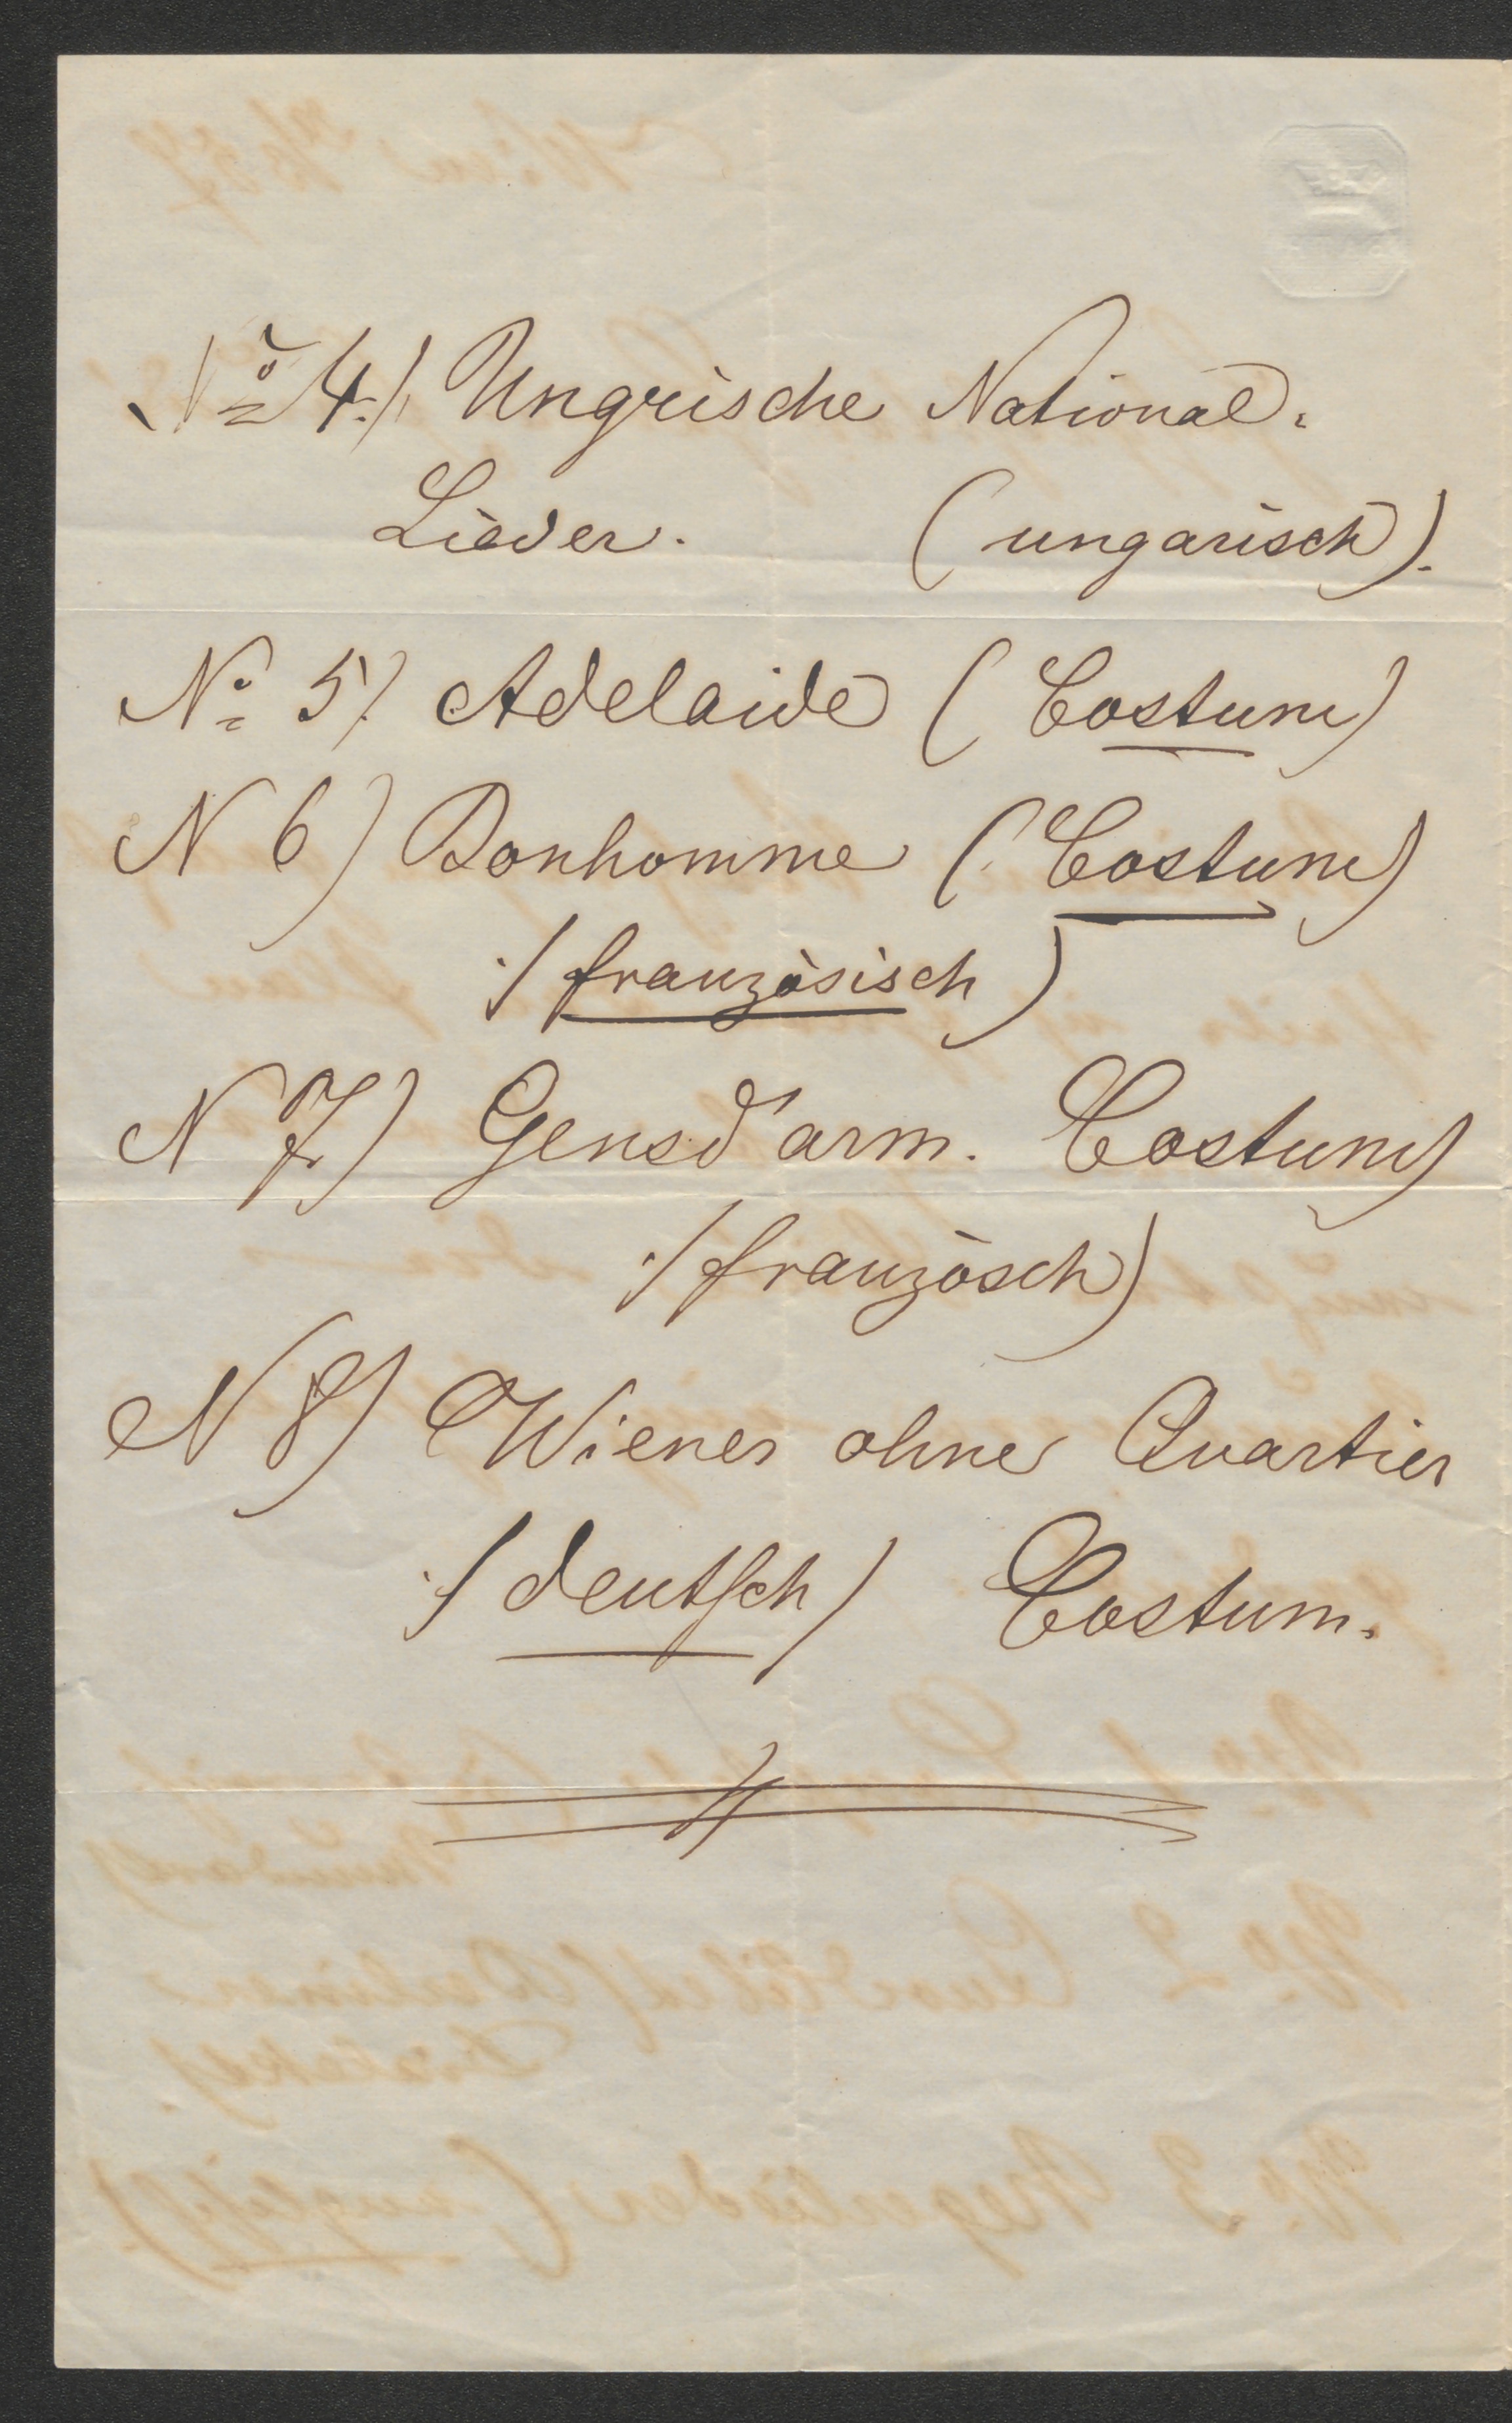 No 4.) Ungrische National-
Lieder. (ungarisch).
No 5.) Adelaide (Costum)
N 6) Bonhomme (Costum)
:/französisch)
N 7) Gensd'arm. Costum)
:/französch)
N 8) Wiener ohne Quartier
:/deutsch) Costum.